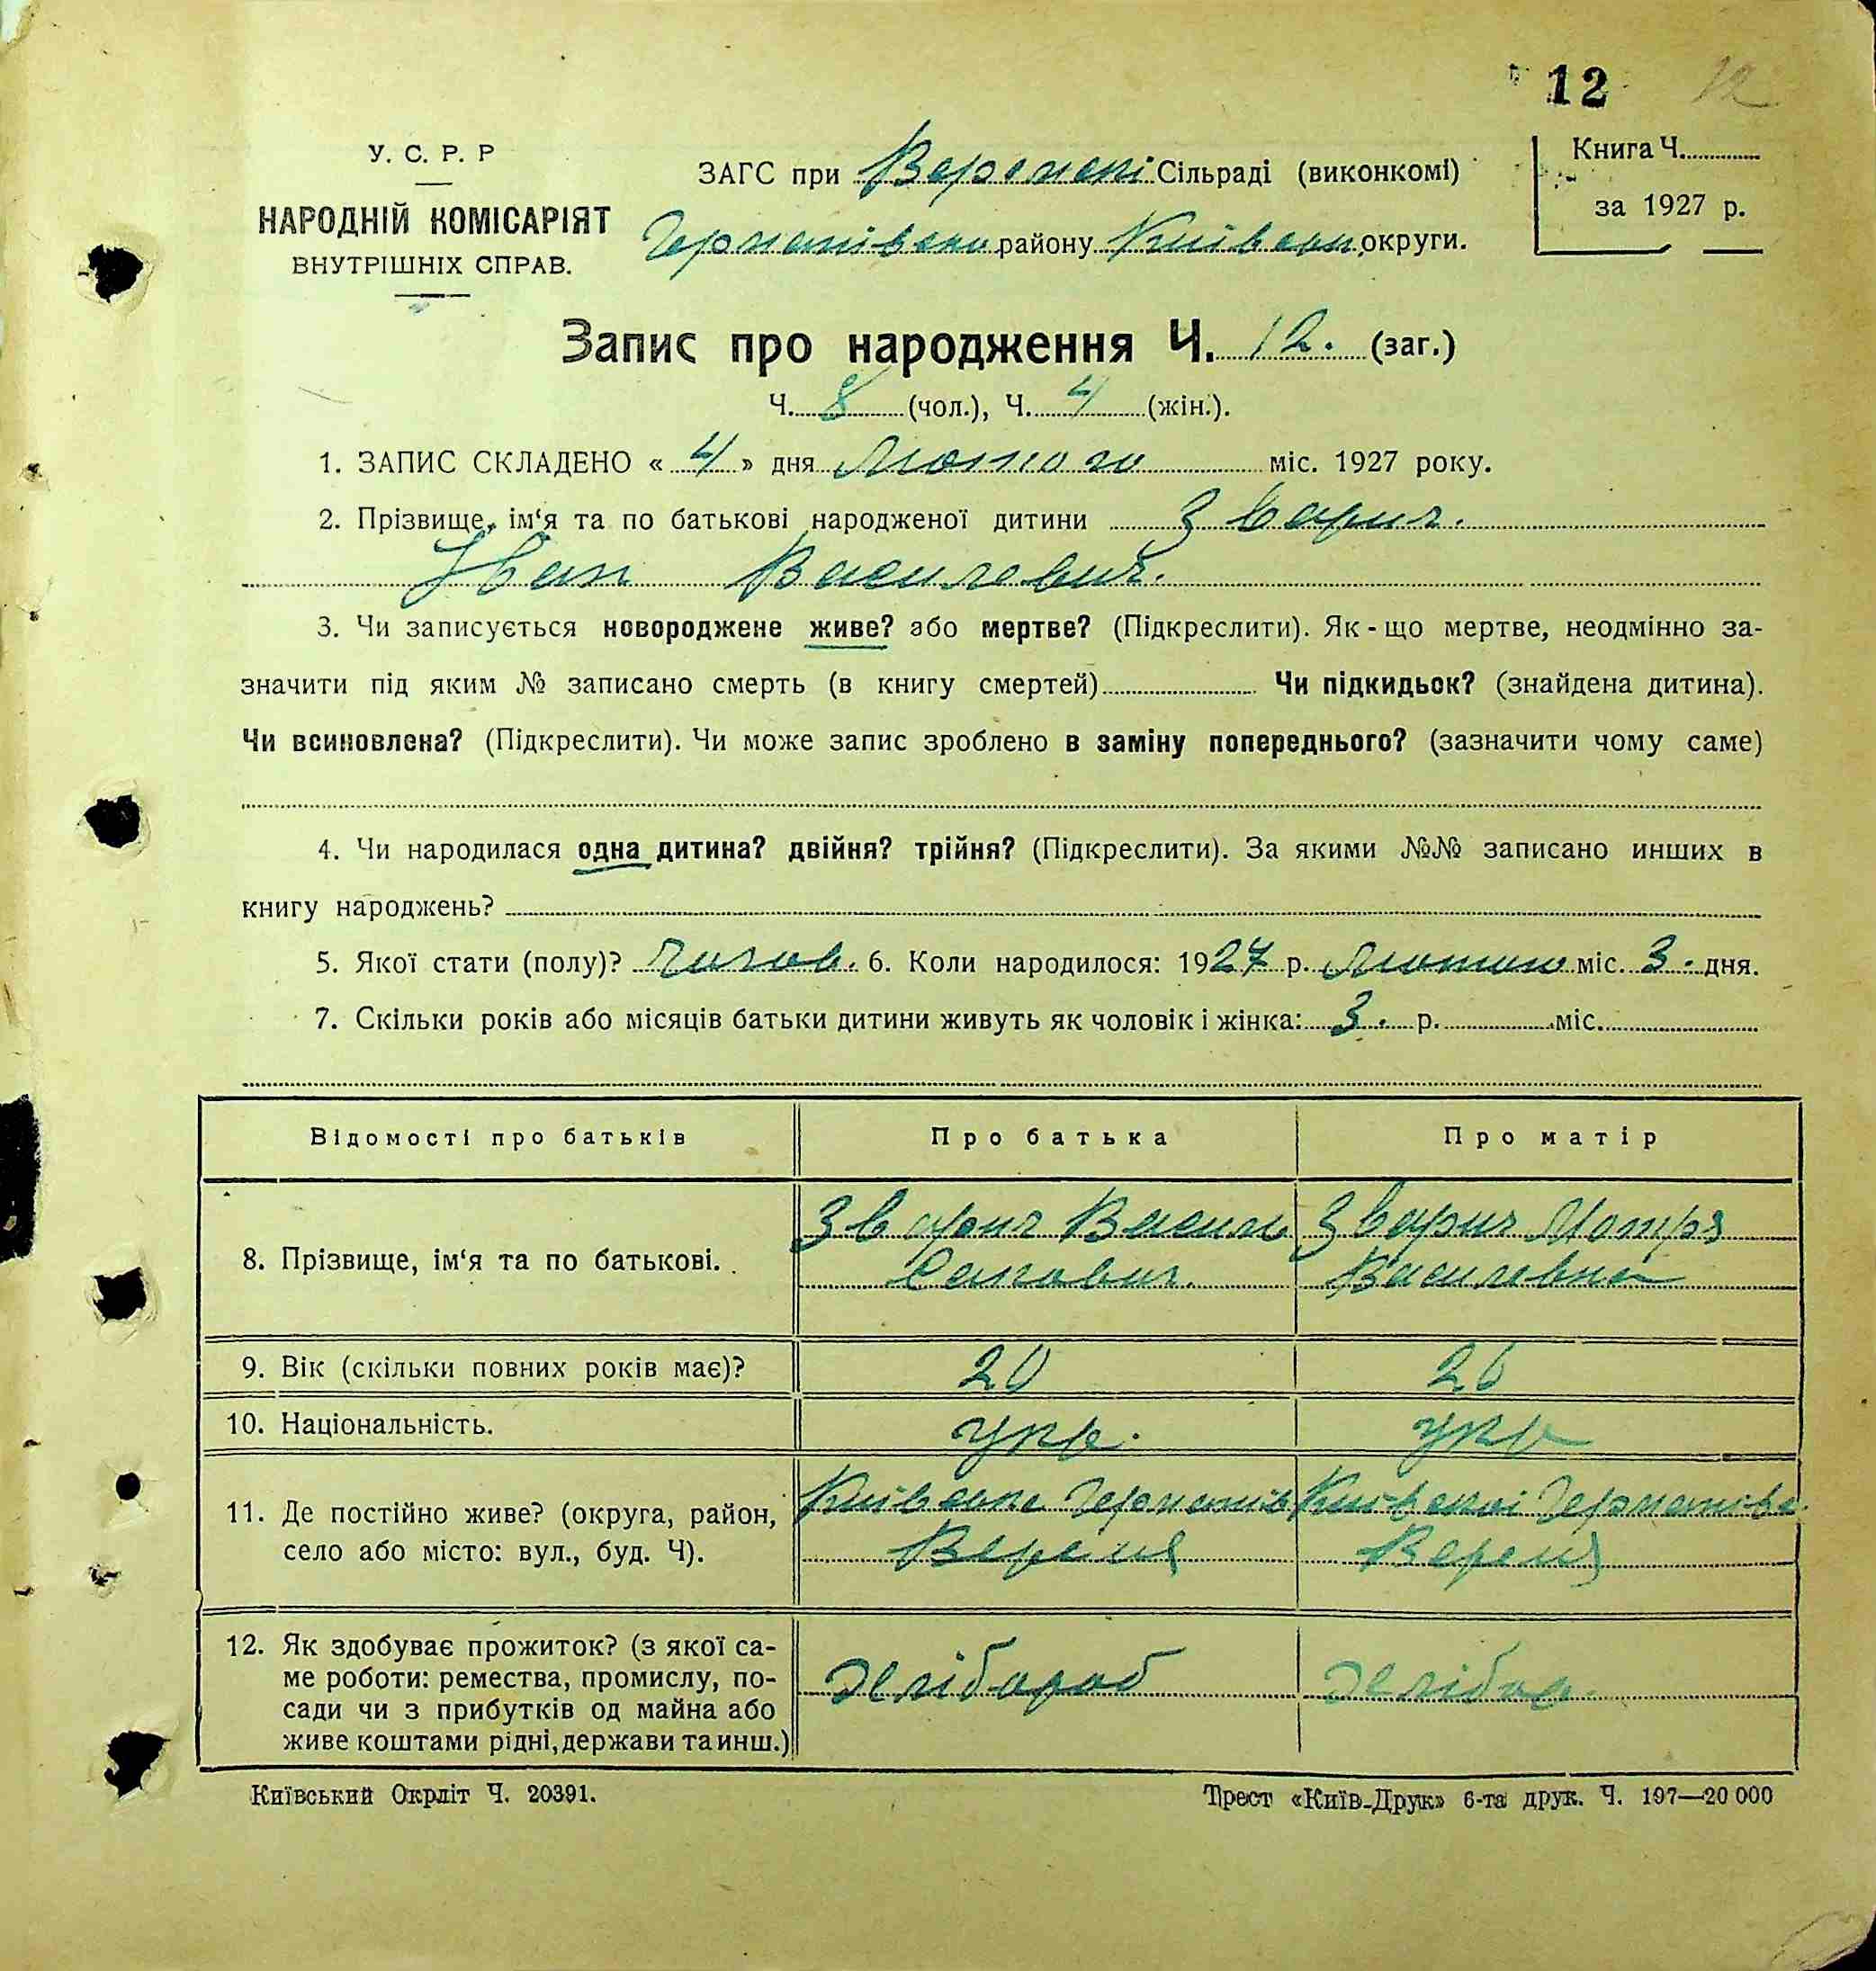 12 12
У. С. Р. Р
НАРОДНІЙ КОМІСАРІЯТ
ВНУТРІШНІХ СПРАВ.
ЗАГС при Веремені Сільраді (виконкомі)
Германівськ району Київськ округи.
Книга Ч.
за 1927 р.
Запис про народження Ч. 12. (заг.)
Ч. 8 (чол.), Ч. 4 (жін.).
1. ЗАПИС СКЛАДЕНО « 4 » дня Лютого міс. 1927 року.
2. Прізвище, ім‘я та по батькові народженої дитини Зварич.
Іван Василевич.
3. Чи записується новороджене живе? або мертве? (Підкреслити). Як-що мертве, неодмінно за-
значити під яким № записано смерть (в книгу смертей) Чи підкидьок? (знайдена дитина).
Чи всиновлена? (Підкреслити). Чи може запис зроблено в заміну попереднього? (зазначити чому саме)
4. Чи народилася одна дитина? двійня? трійня? (Підкреслити). За якими №№ записано инших в
книгу народжень?
5. Якої стати (полу)? Чолов. 6. Коли народилося: 1927 р. Лютого міс. 3. дня.
7. Скільки років або місяців батьки дитини живуть як чоловік і жінка: 3. р. міс.
Відомості про батьків Про батька Про матір
8. Прізвище, ім‘я та по батькові. Зварич Василь Зварич Мотря
Савович. Василевна
9. Вік (скільки повних років має)? 20 26
10. Національність. укр. укр
11. Де постійно живе? (округа, район, Київська Германів Київської Германівс.
село або місто: вул., буд. Ч). Веремя Веремя
12. Як здобуває прожиток? (з якої са-
ме роботи: ремества, промислу, по- Хлібороб Хлібор.
сади чи з прибутків од майна або
живе коштами рідні, держави та инш.)
Київський Окрліт Ч. 20391. Трест «Київ-Друк» 6-та друк. Ч. 197—20 000